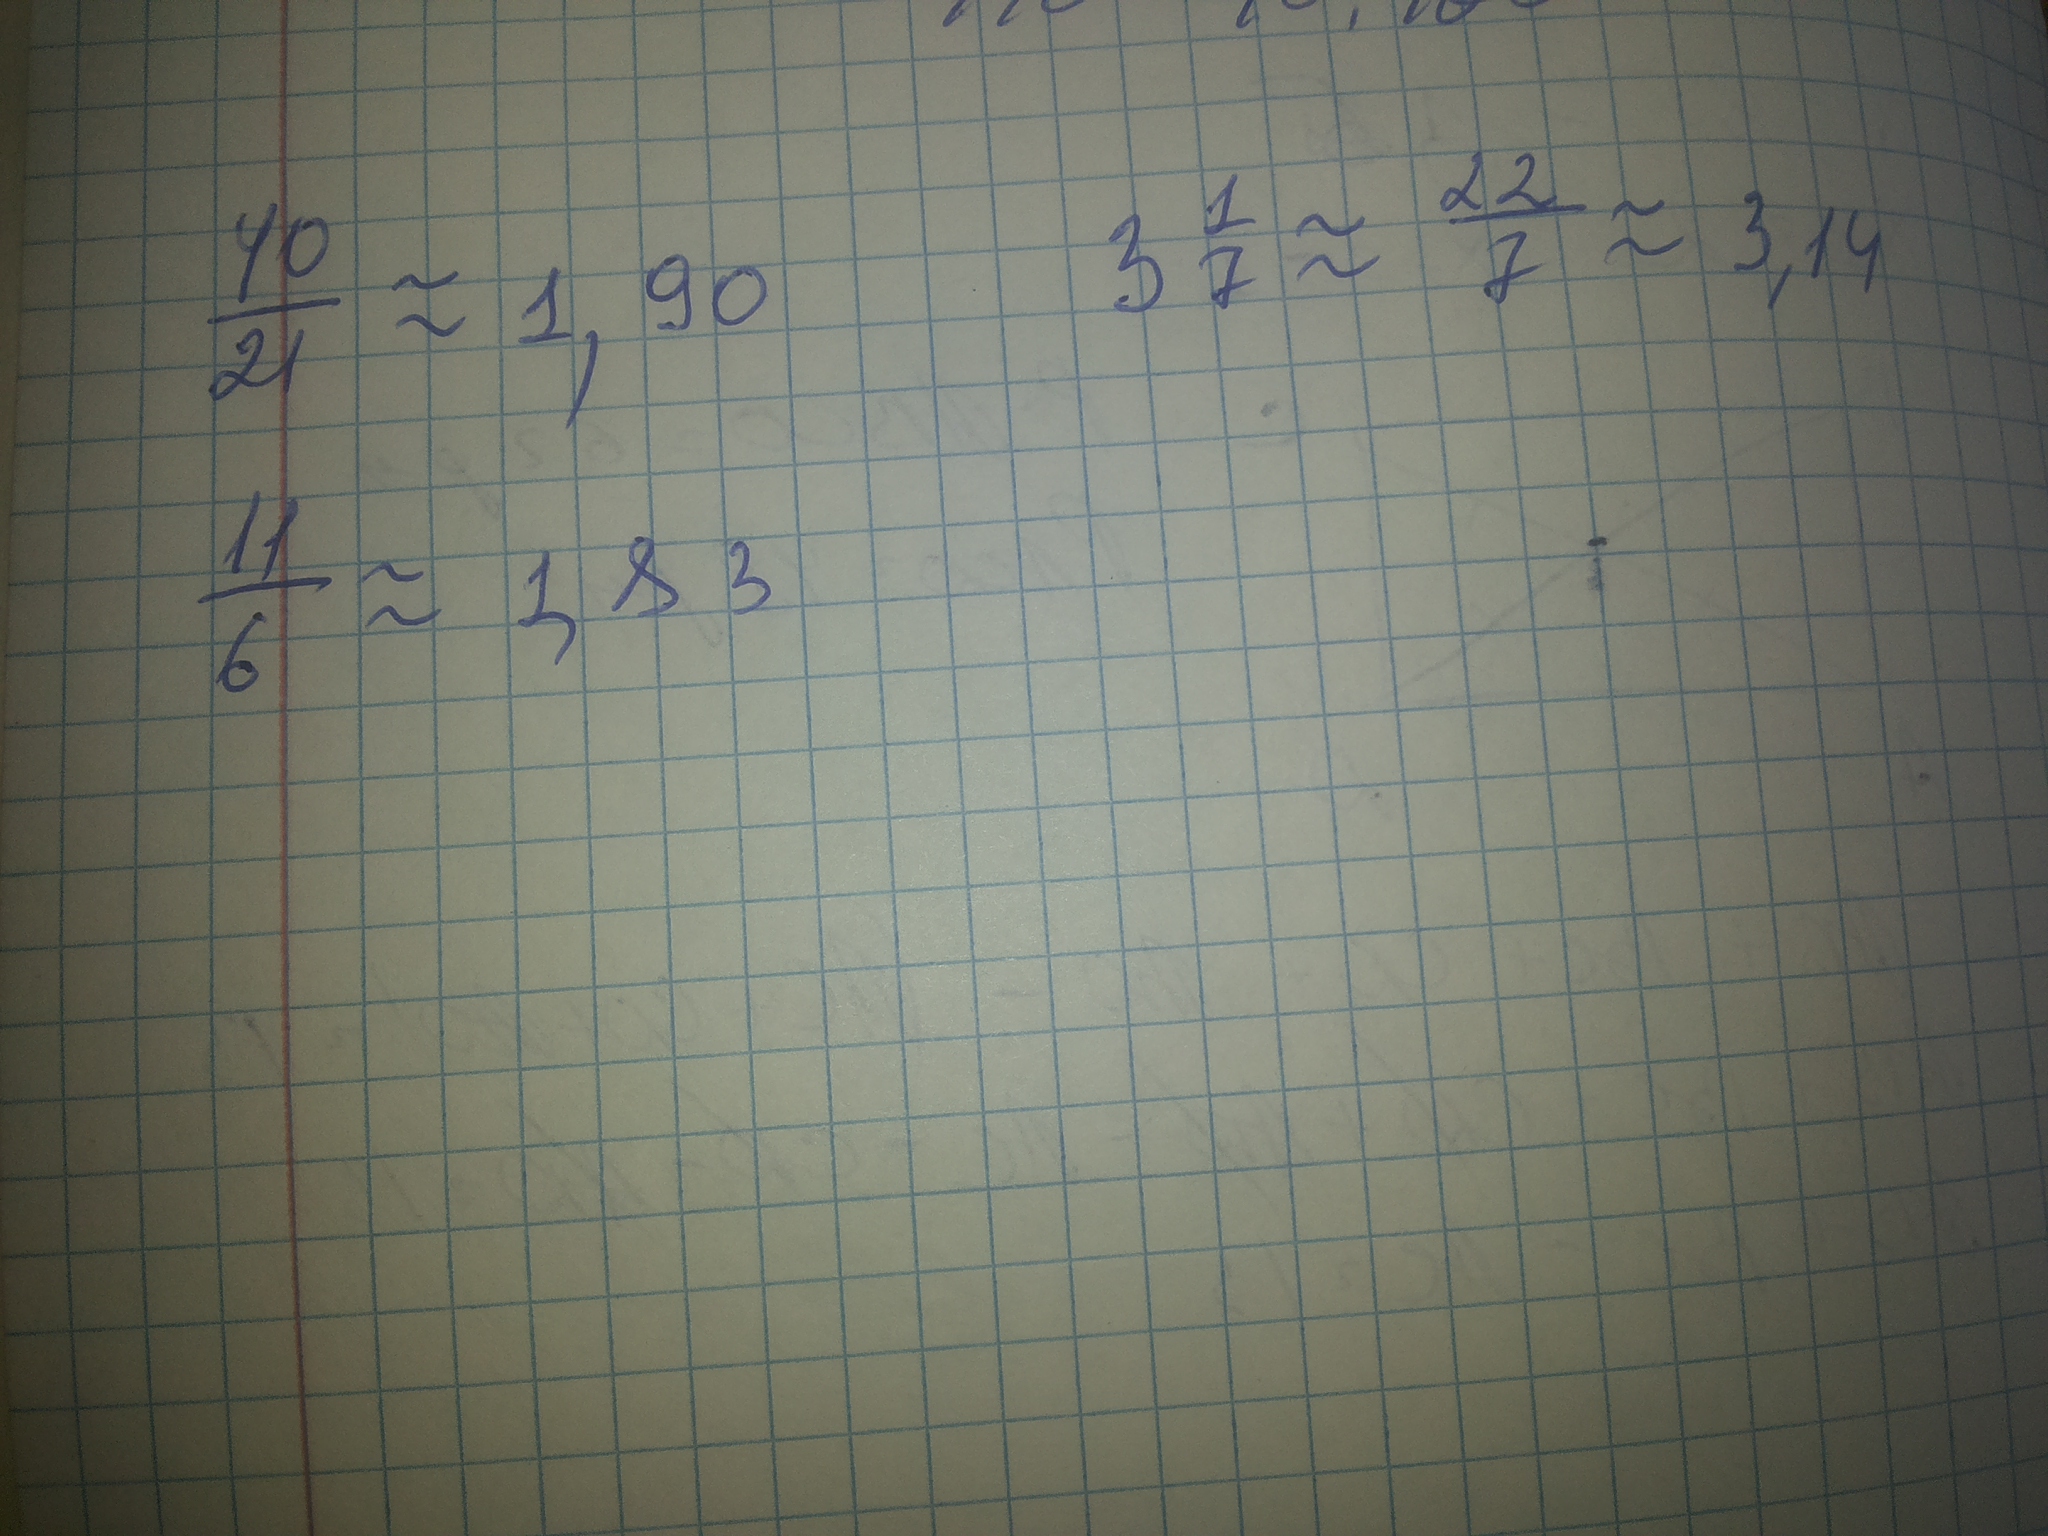 40/21 ≈ 1,90
3 1/7 ≈ 22/7 ≈ 3,14
11/6 ≈ 1,83